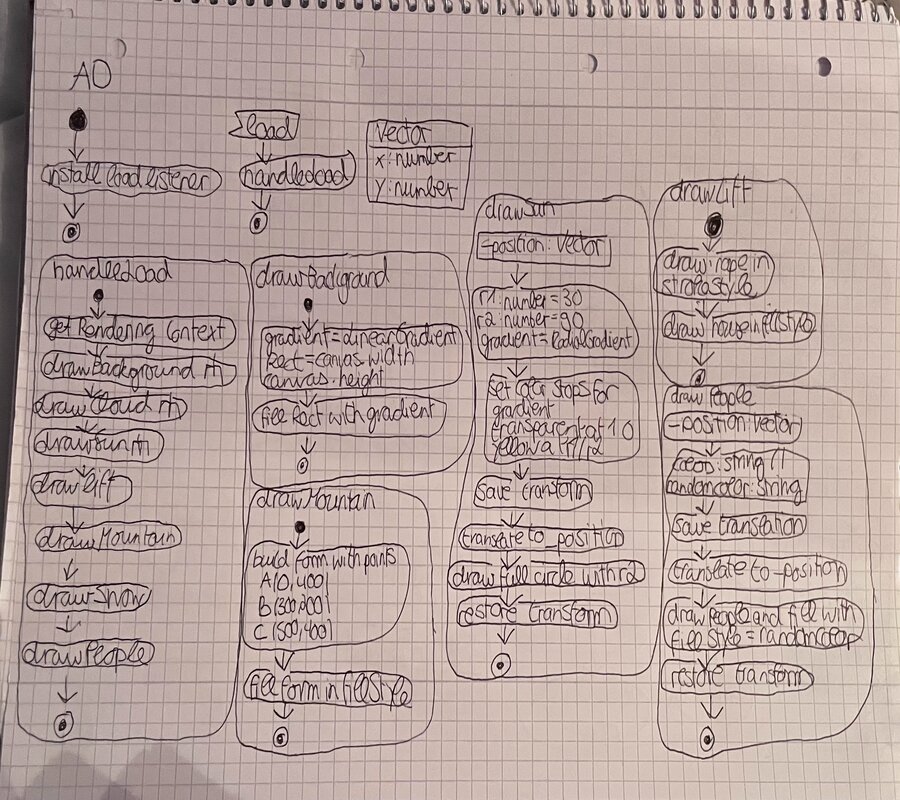 AD
install load listener
load
handleLoad
Vector
x: number
y: number
handleLoad
get Rendering Context
drawBackground
drawCloud
drawSun
drawLift
drawMountain
drawSnow
drawPeople
drawBackground
gradient = LinearGradient
Rect = canvas.width
canvas.height
fill Rect with gradient
drawMountain
build form with points
A (0, 400)
B (300, 200)
C (500, 400)
fill form in fillStyle
drawSun
-position: Vector
r1: number = 30
r2: number = 90
gradient = RadialGradient
set color stops for
gradient
transparent at 1.0
yellow at r1/r2
save transform
translate to _position
draw full circle with r2
restore transform
drawLift
draw rope in
strokestyle
draw house in fillstyle
draw People
-position: Vector
: string []
randomcolor: string
save translation
translate to -position
draw People and fill with
fillStyle =
restore transform